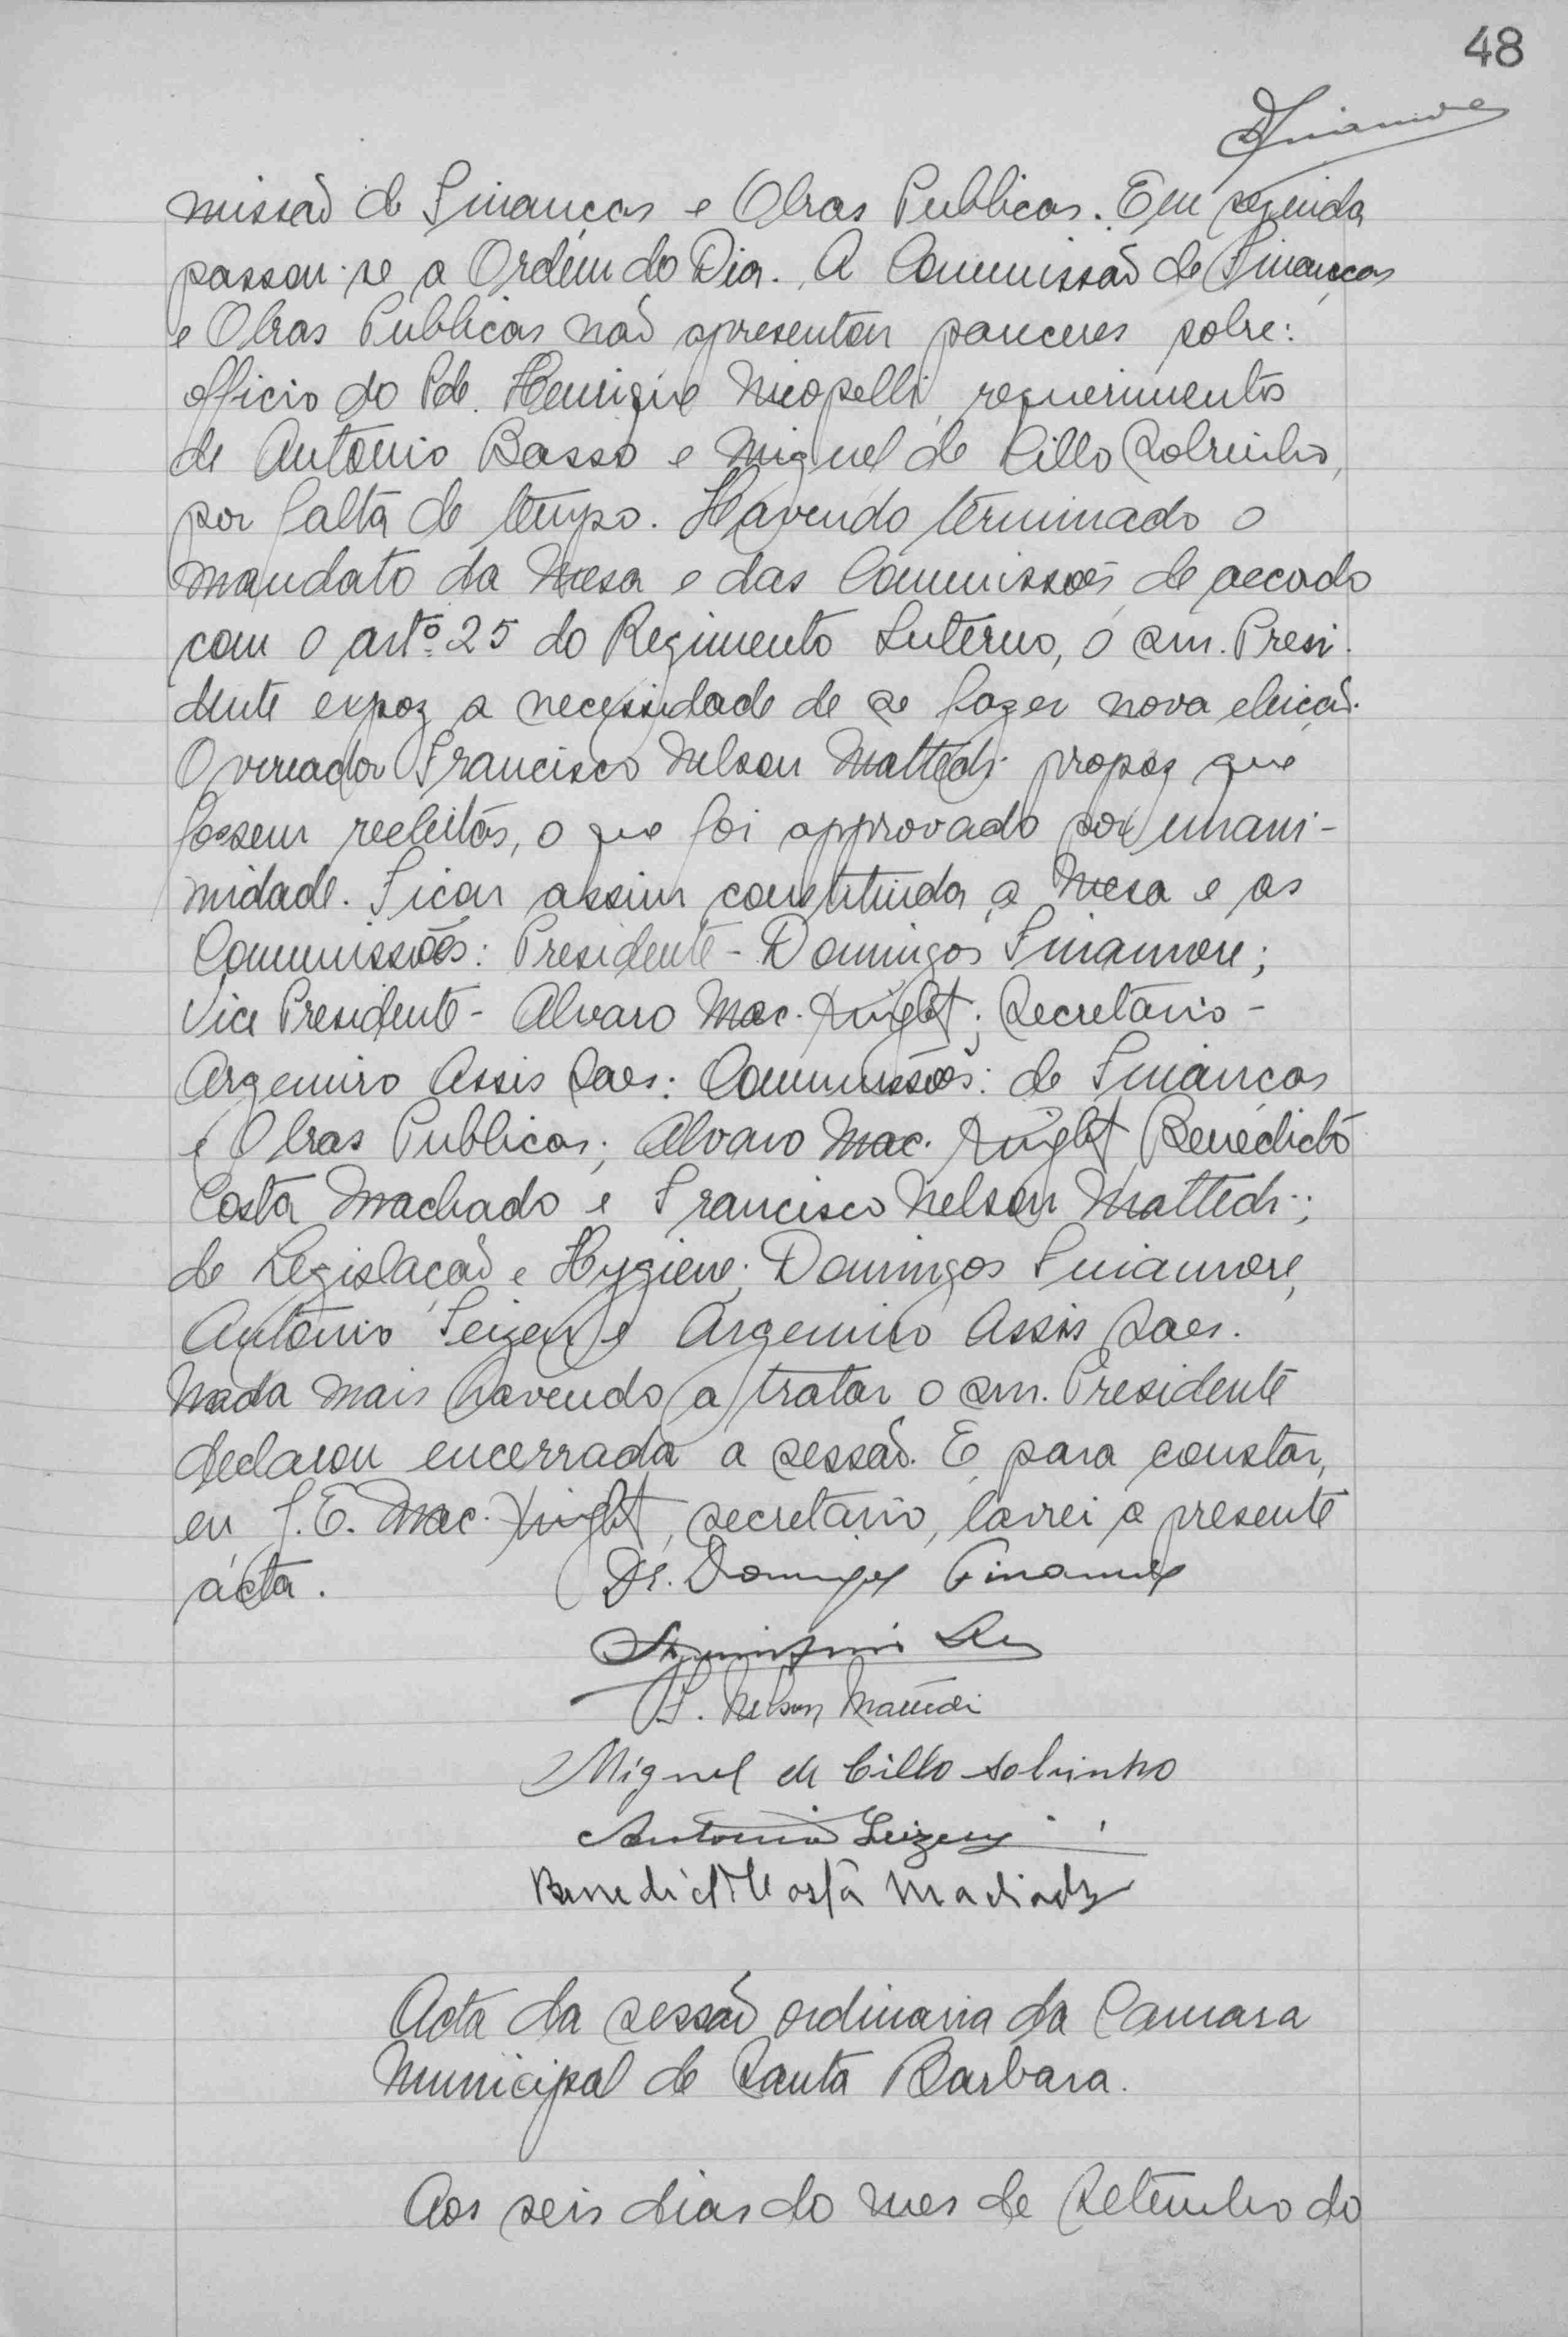 48
missão de Finanças e Obras Publicas. Em seguida
passou-se a Ordem do Dia. A Commissão de Finanças
e Obras Publicas não apresentou pareceres sobre:
officio do Pde. Henrique Nicopelli, requerimentos
de Antonio Basso e Miguel de Cillo Sobrinho,
por falta de tempo. Havendo terminado o
mandato da Mesa e das Commissões, de accordo
com o artº 25 do Regimento Interno, o snr. Presi-
dente expoz a necessidade de se fazer nova eleição.
O vereador Francisco Nelson Mattedi propoz que
fossem reeleitos, o que foi approvado por unani-
midade. Ficou assim constituida a Mesa e as
Commissões: Presidente - Domingos Finamore;
Vice Presidente - Alvaro Mac-Knight; Secretario -
Argemiro Assis Saes: Commissões: de Finanças
e Obras Publicas; Alvaro Mac-Knight, Benedicto
Costa Machado e Francisco Nelson Mattedi;
de Legislação e Hygiene; Domingos Finamore,
Antonio Seizer e Argemiro Assis Saes.
Nada mais havendo a tratar o snr. Presidente
declarou encerrada a sessão. E, para constar,
eu J. E. Mac-Knight, secretario, lavrei a presente
acta.
Dr. Domingos Finamore
F. Nelson Mattedi
Miguel de Cillo Sobrinho
Antonio
Benedicto Costa Machado
Acta da sessão ordinaria da Camara
Municipal de Santa Barbara.
Aos seis dias do mes de Setembro do